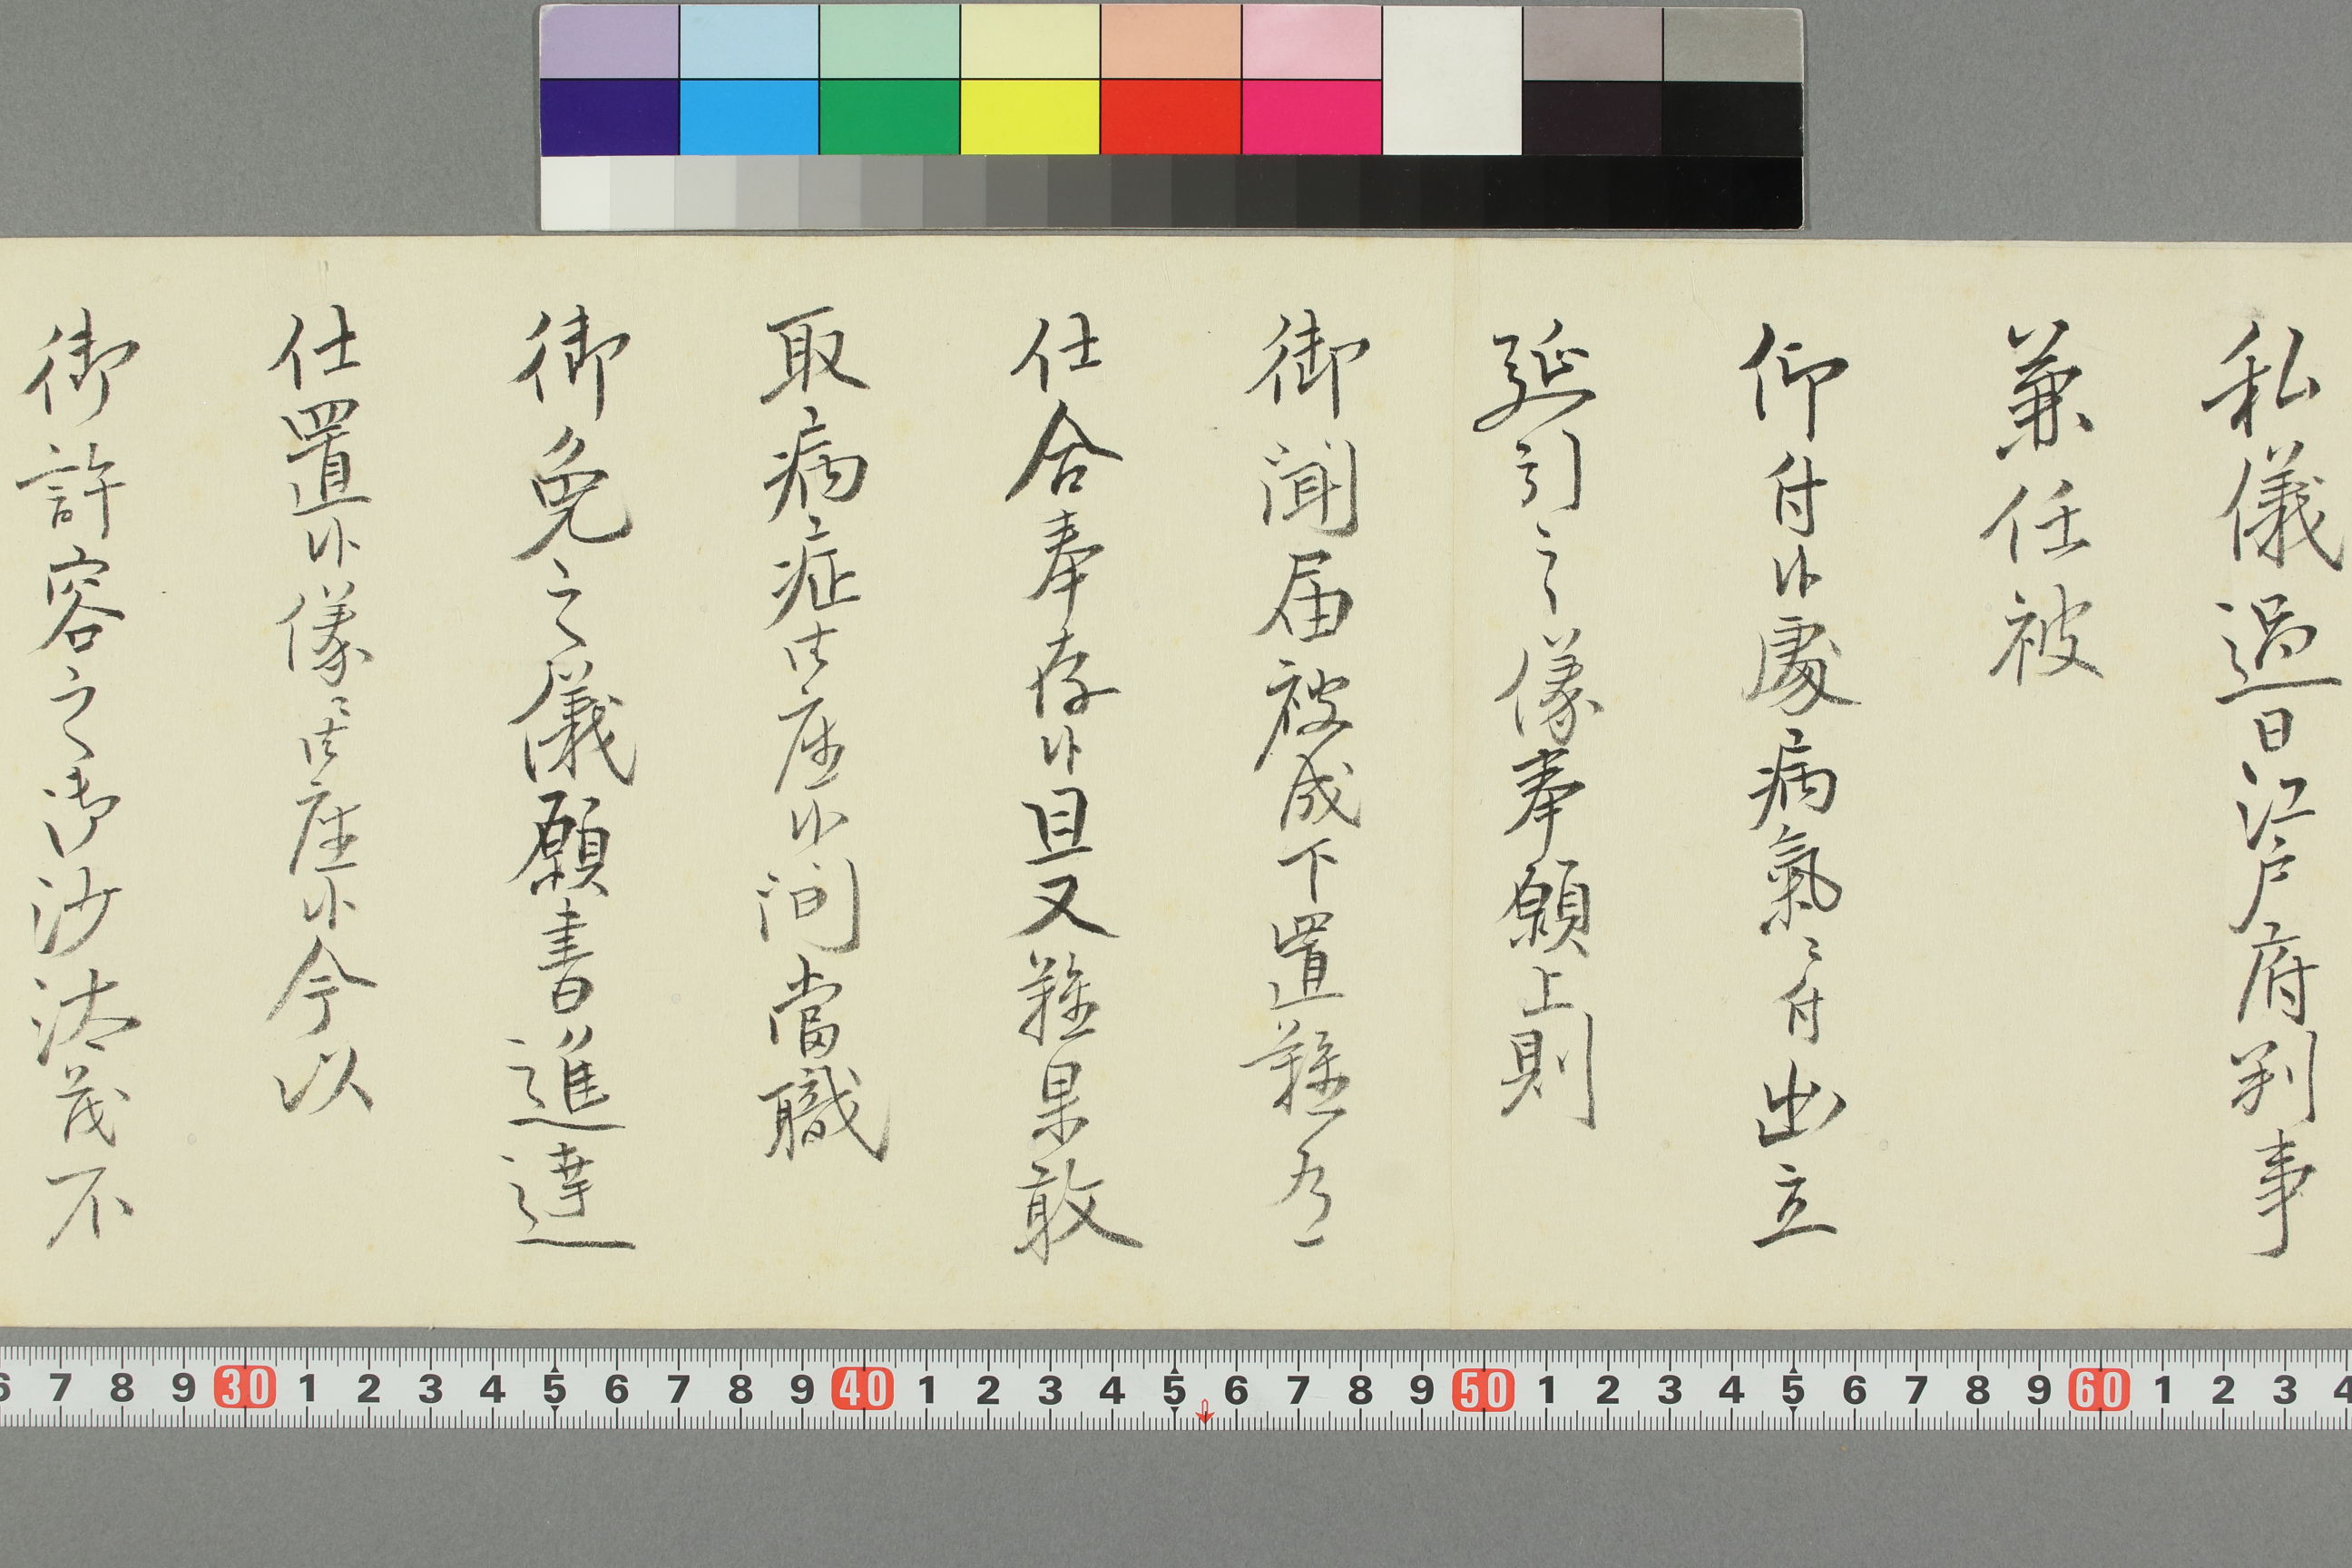 私儀過日江戸府判事
兼任被
仰付候處病氣ニ付出立
延引之儀奉願上則
御聞届被成下置難有
仕合奉存候且又難果敢
取病症御座候間當職
御免之儀願書進達
仕置候儀ニ御座候今以
御許容之御沙汰茂不
6 7 8 9 30 1 2 3 4 5 6 7 8 9 40 1 2 3 4 5 6 7 8 9 50 1 2 3 4 5 6 7 8 9 60 1 2 3 4